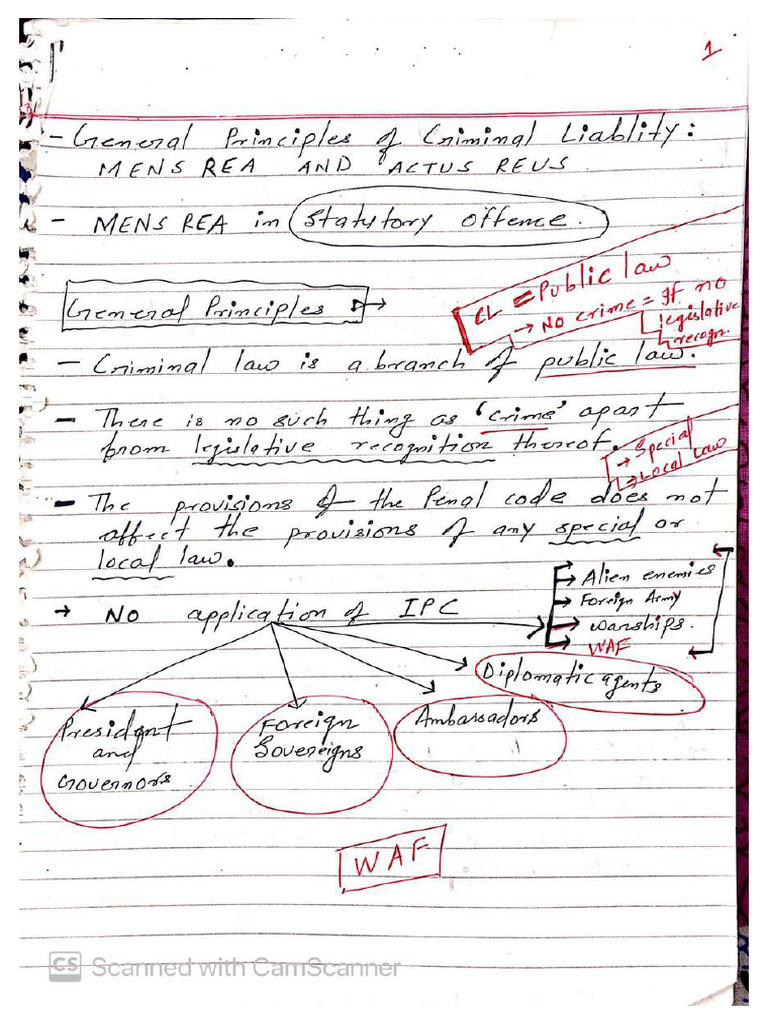 1
- General Principles of Criminal Liablity:
MENS REA AND ACTUS REUS
- MENS REA in Statutory offence.
General Principles →
CL = Public law
→ No crime = If no
legislative
recogn.
- Criminal law is a branch of public law.
- There is no such thing as 'crime' apart
from legislative recognition thereof.
→ Special
→ Local Law
- The provisions of the Penal code does not
affect the provisions of any special or
local law.
→ No application of IPC
→ Alien enemies
→ Foreign Army
→ warships.
→ WAF
Diplomatic agents
President
and
Governors
Foreign
Sovereigns
Ambassadors
WAF
CS Scanned with CamScanner